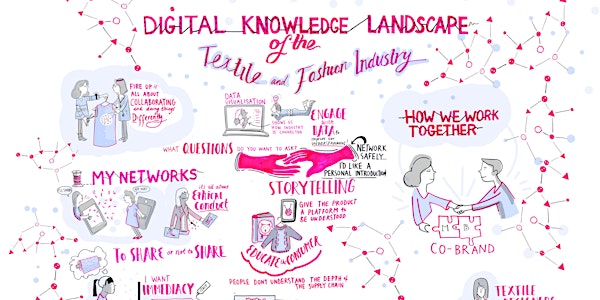 DIGITAL KNOWLEDGE LANDSCAPE
of the
Textile and Fashion Industry
FIRE UP IS
ALL ABOUT
COLLABORATING
and doing things
Differently
DATA
VISUALISATION
SHOWS US
HOW INDUSTRY
IS CONNECTED
ENGAGE
WITH
DATA to
WHAT QUESTIONS DO YOU WANT TO ASK?
NETWORK
SAFELY...
I'D LIKE A
PERSONAL INTRODUCTION
HOW WE WORK
TOGETHER
MY NETWORKS
it's all about
Ethical
Conduct
STORYTELLING
GIVE THE PRODUCT
A PLATFORM TO
BE UNDERSTOOD
EDUCATE the CONSUMER
CO-BRAND
TO SHARE or not to SHARE
I WANT
IMMEDIACY
PEOPLE DON'T UNDERSTAND THE DEPTH OF
THE SUPPLY CHAIN
TEXTILE